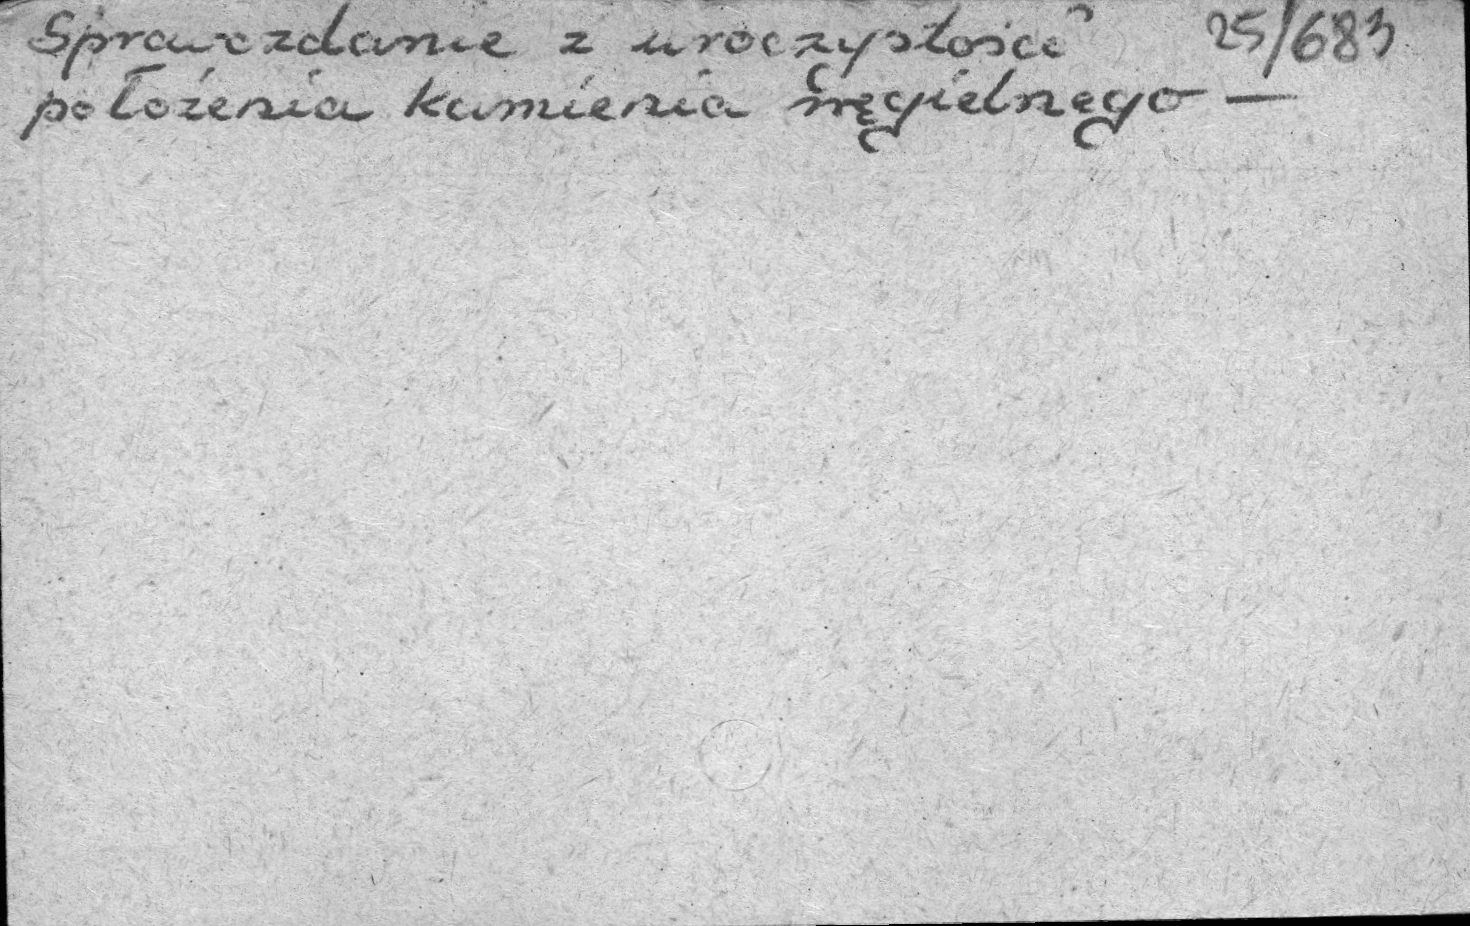 Sprawozdanie z uroczystości 25/683
położenia kamienia węgielnego —